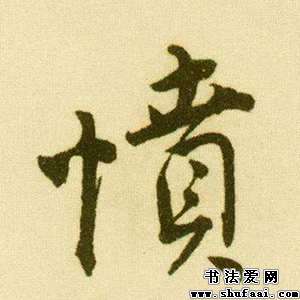 憤
书法爱网
www.shufaai.com